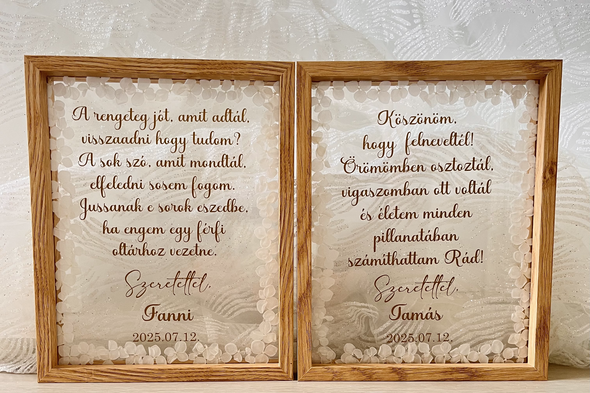 A rengeteg jót, amit adtál,
visszaadni hogy tudom?
A sok szó, amit mondtál,
elfeledni sosem fogom.
Jussanak e sorok eszedbe,
ha engem egy férfi
oltárhoz vezetne.
Szeretettel,
Fanni
2025.07.12.
Köszönöm,
hogy felneveltél!
Örömömben osztoztál,
vigaszomban ott voltál
és életem minden
pillanatában
számíthattam Rád!
Szeretettel,
Tamás
2025.07.12.